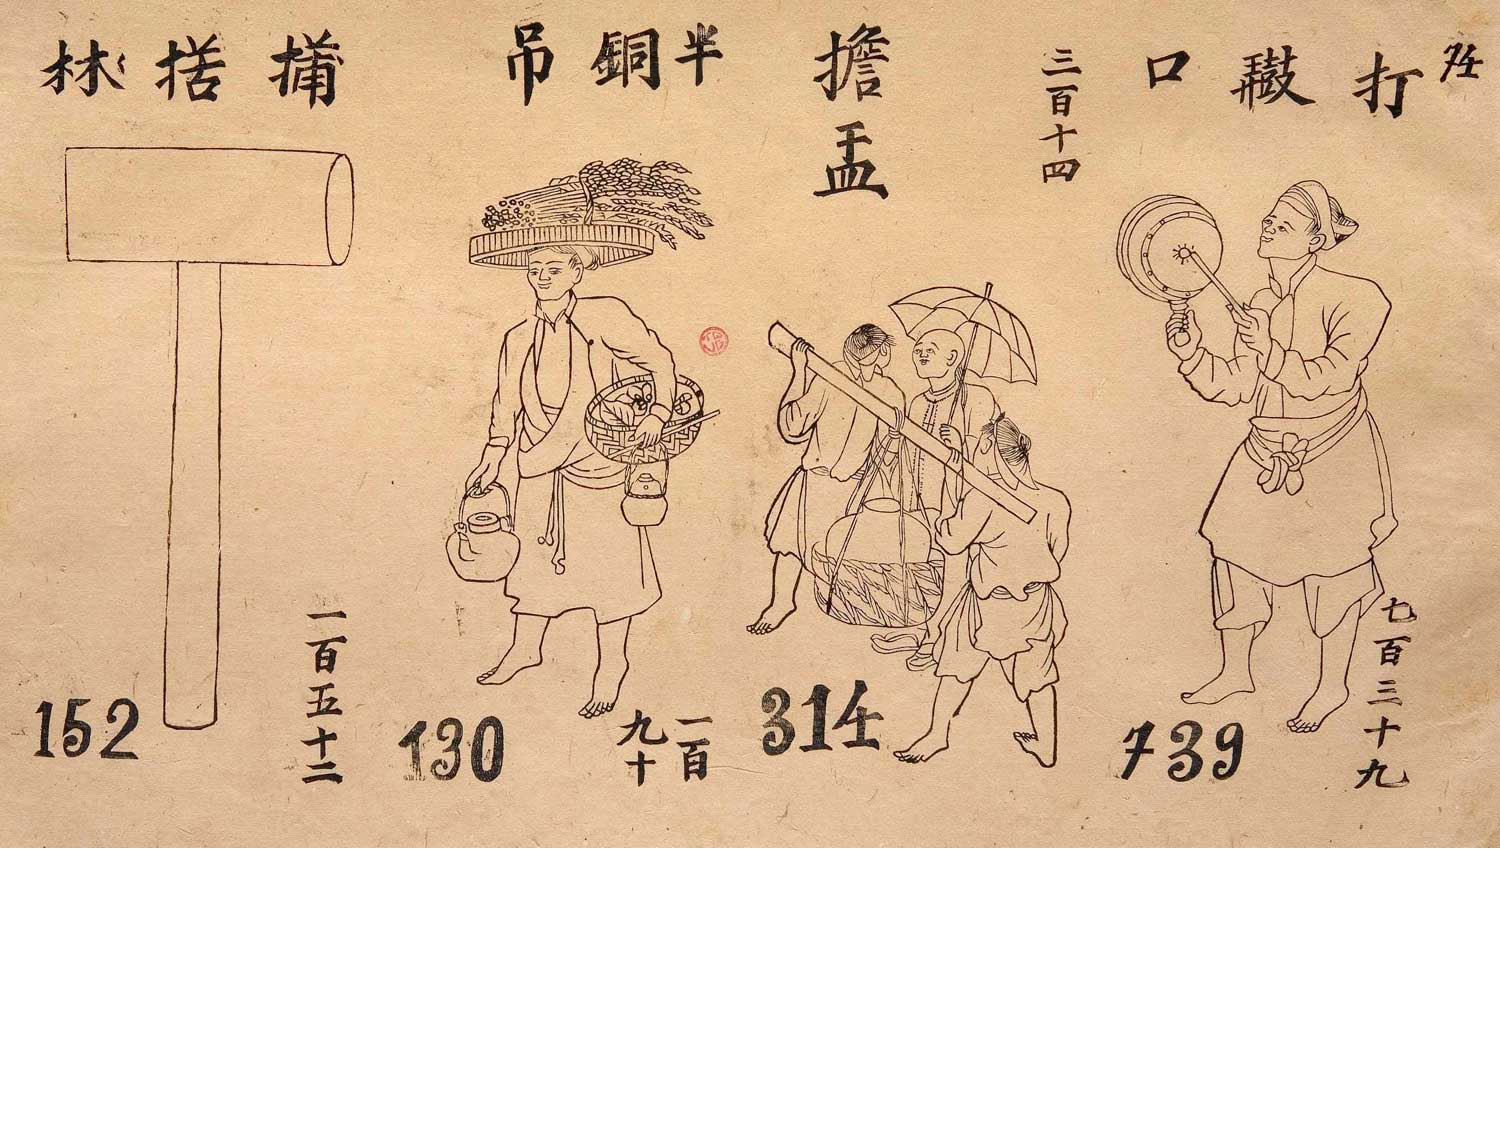 74
打皷口
739
七百三十九
擔盂
三百十四
314
半銅吊
130
一百
九十
林
152
一百五十二